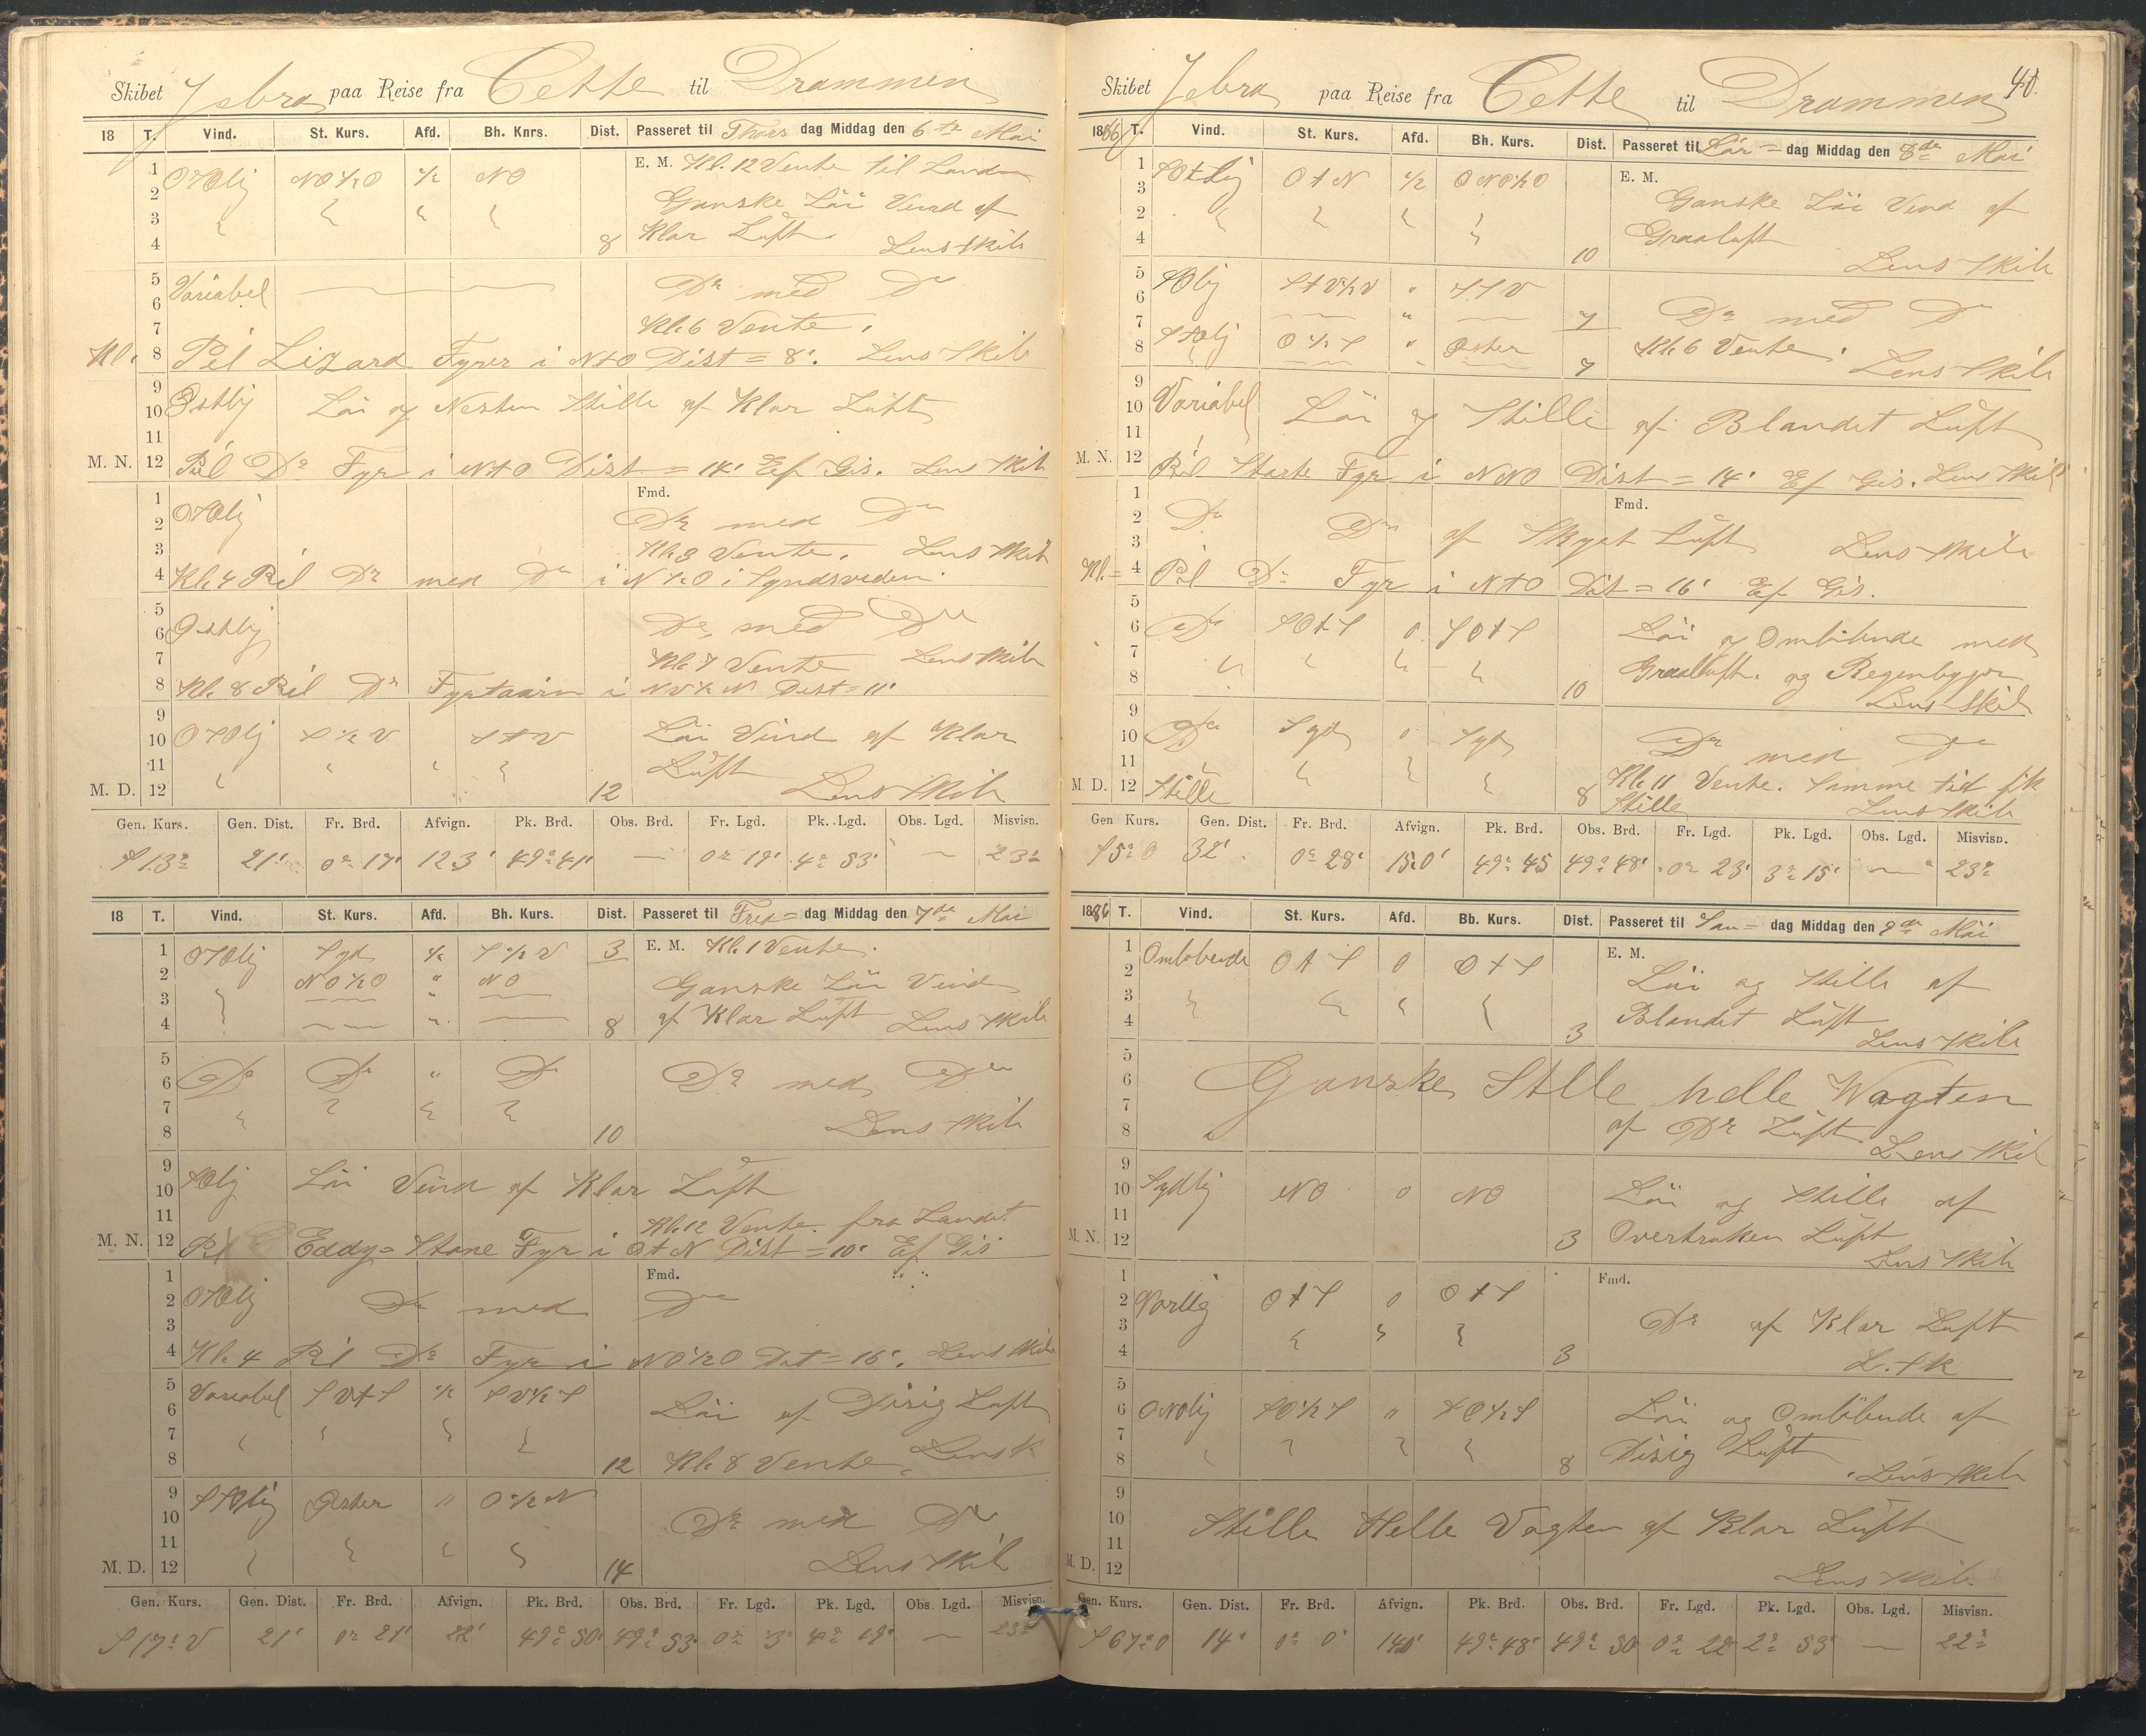 Skibet Jebra paa Reise fra Cette til Drammen
18 T. Vind. St. Kurs. Afd. Bh. Knrs. Dist. Passeret til Thors dag Middag den 6te Mai
1 2 3 4
OSOlig NO½O ½ NO 8
E. M. Kl. 12 Vente til Landen
Ganske Löi Vind af
Klar Luft. Lens Skib
5 6 7 8
Variabel Do med Do
Kl. 6 Vente.
Kl. Pel Lizard Fyrer i NtO Dist = 8'. Lens Skib
9 10 11
Ostlig Löi og Nesten Stille af Klar Luft
M. N. 12 Peil Do Fyr i NtO Dist = 14' Ef Gis. Lens Skib
1 2 3 4
Fmd.
OSOlig Do med Do
Kl. 3 Vente. Lens Skib
Kl. 4 Pel Do med Do i N½O i Syndsveden.
5 6 7 8
Ostlig Do med Do
Kl. 7 Vente Lens Skib
Kl. 8 Pel Do Fyrtaarn i NV½N Dist = 11'
9 10 11
OSOlig S½V StV Löi Vind af Klar
Luft
M. D. 12 12 Lens Skib
Gen. Kurs. Gen. Dist. Fr. Brd. Afvign. Pk. Brd. Obs. Brd. Fr. Lgd. Pk. Lgd. Obs. Lgd. Misvisn.
S 13° 21' 0° 17' 123' 49° 41' — 0° 19' 4° 53' — 23°
18 T. Vind. St. Kurs. Afd. Bh. Kurs. Dist. Passeret til Fre= dag Middag den 7de Mai
1 2 3 4
OSOlig Syd ½ S½V 3 E. M. Kl. 1 Vente.
NO½O " NO Ganske Löi Vind
8 af Klar Luft Lens Skib
5 6 7 8
Do Do " Do Do med Do
10 Lens Skib
9 10 11
SOlig Löi Vind af Klar Luft
Kl. 12 Vente fra Landet
M. N. 12 Pel Eddy= Stone Fyr i OtN Dist = 10' Ef Gis
1 2 3 4
Fmd.
OSOlig Do med Do
Kl. 4 Pel Do Fyr i NO½O Dist = 16'. Lens Skib
5 6 7 8
Variabel SVtS ½ SV½S Löi af Disig Luft
12 Kl. 8 Vente. Lensk
9 10 11
SSOlig Oster " O½N Do med Do
M. D. 12 14 Lens Skib
Gen. Kurs. Gen. Dist. Fr. Brd. Afvign. Pk. Brd. Obs. Brd. Fr. Lgd. Pk. Lgd. Obs. Lgd. Misvisn.
S 17° V 21' 0° 21' 22' 49° 50' 49° 53' 0° 3' 4° 19' — 23°
Skibet Jebra paa Reise fra Cette til Drammen
1886 T. Vind. St. Kurs. Afd. Bh. Kurs. Dist. Passeret til Lör= dag Middag den 8de Mai
1 3 2 4
SOtlig OtN ½ ONO½O E. M.
Ganske Löi Vind af
Graaluft
10 Lens Skib
5 6 7 8
SOlig StV½V " SSV 7 Do med Do
SSOlig O½S " Oster 7 Kl. 6 Vente. Lens Skib
9 10 11
Variabel Löi og Stille af Blandet Luft
M. N. 12 Peil Starte Fyr i NNO Dist = 14' Ef Gis. Lens Skib
1 2 3 4
Fmd.
Do Do af Skyet Luft Lens Skib
Kl. = Peil Do Fyr i NtO Dist = 16' Ef Gis.
5 6 7 8
Do SOtS 0 SOtS Löi og Omlöbende med
Graaluft. og Regenbyger
10 Lens Skib
9 10 11
Do Syd 0 Syd Do med Do
M. D. 12 Stille 8 Kl. 11 Vente. Samme tid fik
Stille Lens Skib
Gen Kurs. Gen. Dist. Fr. Brd. Afvign. Pk. Brd. Obs. Brd. Fr. Lgd. Pk. Lgd. Obs. Lgd. Misvisn.
S 5° O 32' 0° 28' 150' 49° 45 49° 48' 0° 23' 3° 15' — 23°
1886 T. Vind. St. Kurs. Afd. Bb. Kurs. Dist. Passeret til Søn= dag Middag den 9de Mai
1 2 3 4
Omlobende OtS 0 OtS E. M.
Löi og Stille af
3 Blandet Luft
Lens Skib
5 6 7 8
Ganske Stlle helle Wagten
af Do Luft Lens Skib
9 10 11
Sydlig NO 0 NO Löi og Stille af
M. N. 12 3 Overtruken Luft
Lens Skib
1 2 3 4
Fmd.
Varlig OtS 0 OtS Do af Klar Luft
3 L. Sk
5 6 7 8
ONOlig SO½S " SO½S Löi og Omlöbende af
8 Disig Luft
Lens Skib
9 10 11
Stille Helle Vagten af Klar Luft
M. D. 12 Lens Skib
Gen. Kurs. Gen. Dist. Fr. Brd. Afvign. Pk. Brd. Obs. Brd. Fr. Lgd. Pk. Lgd. Obs. Lgd. Misvisn.
S 67° O 14' 0° 0' 140' 49° 48' 49° 50 0° 22 2° 53' — 22°